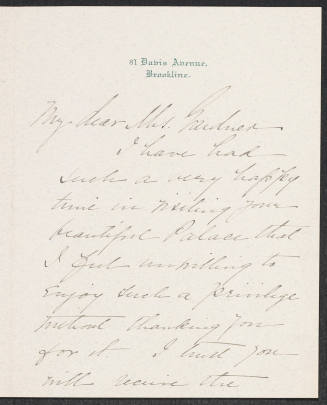 81 Davis Avenue,
Brookline.
My dear Mrs. Gardner
I have had
such a very happy
time in visiting your
beautiful Palace that
I feel unwilling to
enjoy such a privilege
without thanking you
for it. I trust you
will receive the